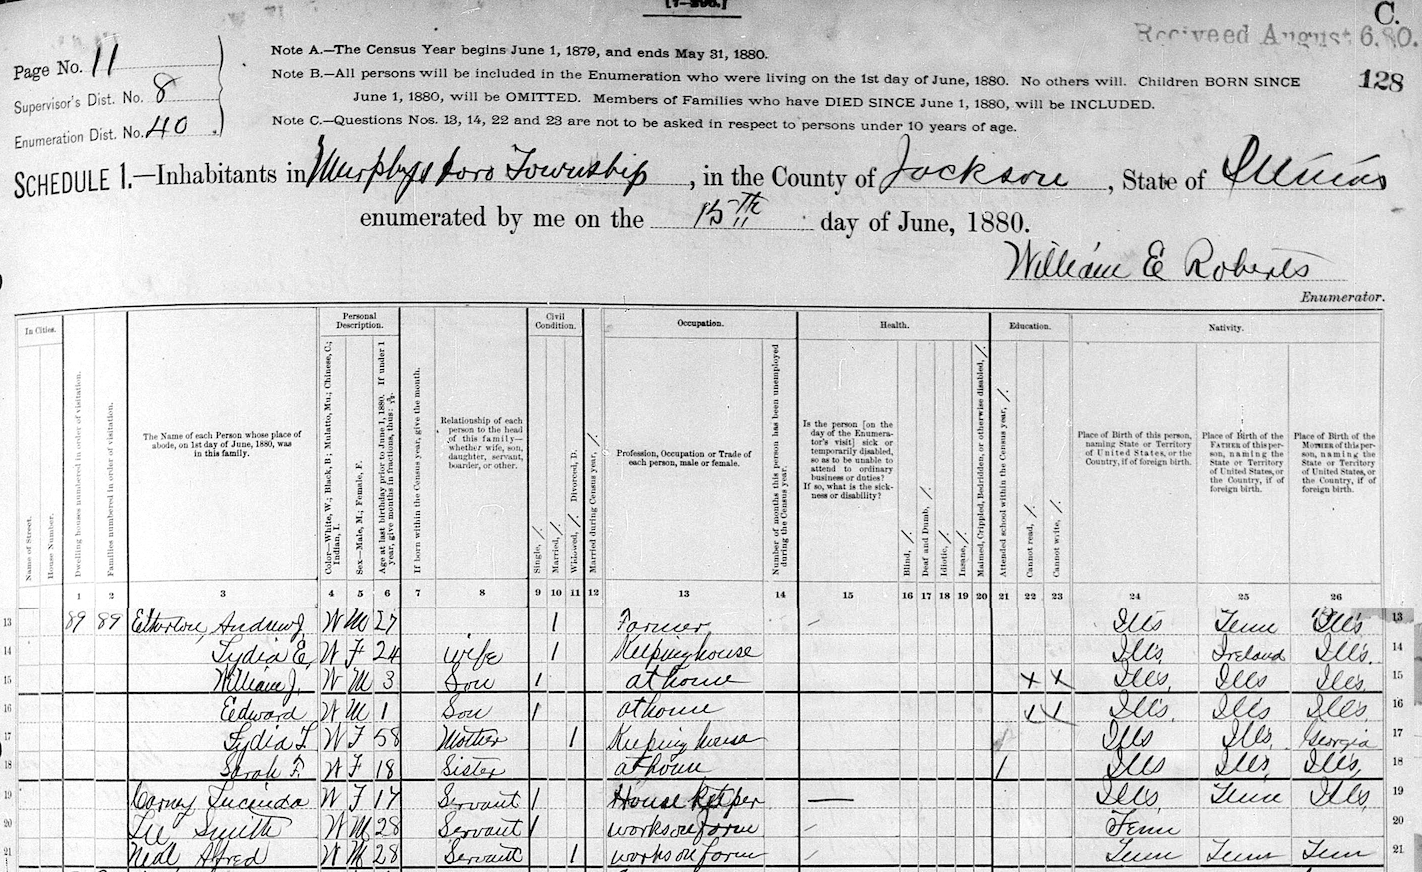 [7-296.]
C.
Received August 6.80.
128
Page No. 11
Supervisor's Dist. No. 8
Enumeration Dist. No. 40
Note A.—The Census Year begins June 1, 1879, and ends May 31, 1880.
Note B.—All persons will be included in the Enumeration who were living on the 1st day of June, 1880. No others will. Children BORN SINCE
June 1, 1880, will be OMITTED. Members of Families who have DIED SINCE June 1, 1880, will be INCLUDED.
Note C.—Questions Nos. 13, 14, 22 and 23 are not to be asked in respect to persons under 10 years of age.
SCHEDULE 1.—Inhabitants in Murphysboro Township, in the County of Jackson, State of Illinois
enumerated by me on the 15th day of June, 1880.
William E Roberts
Enumerator.
In Cities.
Name of Street.
House Number.
Dwelling houses numbered in order of visitation.
Families numbered in order of visitation.
The Name of each Person whose place of
abode, on 1st day of June, 1880, was
in this family.
Personal
Description.
Color—White, W.; Black, B.; Mulatto, Mu.; Chinese, C.;
Indian, I.
Sex—Male, M.; Female, F.
Age at last birthday prior to June 1, 1880. If under 1
year, give months in fractions, thus:
If born within the Census year, give the month.
Relationship of each
person to the head
of this family—
whether wife, son,
daughter, servant,
boarder, or other.
Civil
Condition.
Single, /.
Married, /.
Widowed, /. Divorced, D.
Married during Census year, /.
Occupation.
Profession, Occupation or Trade of
each person, male or female.
Number of months this person has been unemployed
during the Census year.
Health.
Is the person [on the
day of the Enumera-
tor's visit] sick or
temporarily disabled,
so as to be unable to
attend to ordinary
business or duties?
If so, what is the sick-
ness or disability?
Blind, /.
Deaf and Dumb, /.
Idiotic, /.
Insane, /.
Maimed, Crippled, Bedridden, or otherwise disabled, /.
Education.
Attended school within the Census year, /.
Cannot read, /.
Cannot write, /.
Nativity.
Place of Birth of this person,
naming State or Territory
of United States, or the
Country, if of foreign birth.
Place of Birth of the
FATHER of this per-
son, naming the
State or Territory
of United States, or
the Country, if of
foreign birth.
Place of Birth of the
MOTHER of this per-
son, naming the
State or Territory
of United States, or
the Country, if of
foreign birth.
1 2 3 4 5 6 7 8 9 10 11 12 13 14 15 16 17 18 19 20 21 22 23 24 25 26
13 89 89 Etherton, Andrew J. W M 27 1 Farmer Ills Tenn Ills 13
14 Lydia E. W F 24 wife 1 Keeping house Ills Ireland Ills. 14
15 William J. W M 3 Son 1 at home X X Ills Ills Ills 15
16 Edward W M 1 Son 1 at home X X Ills Ills Ills 16
17 Lydia L W F 58 Mother 1 Keeping house Ills Ills Georgia 17
18 Sarah F. W F 18 Sister at home 1 Ills Ills Ills 18
19 Carney Lucinda W F 17 Servant 1 House Keeper Ills Tenn Ills 19
20 Smith W M 28 Servant 1 works on farm Tenn 20
21 Neal Alfred W M 28 Servant 1 works on farm Tenn Tenn Tenn 21